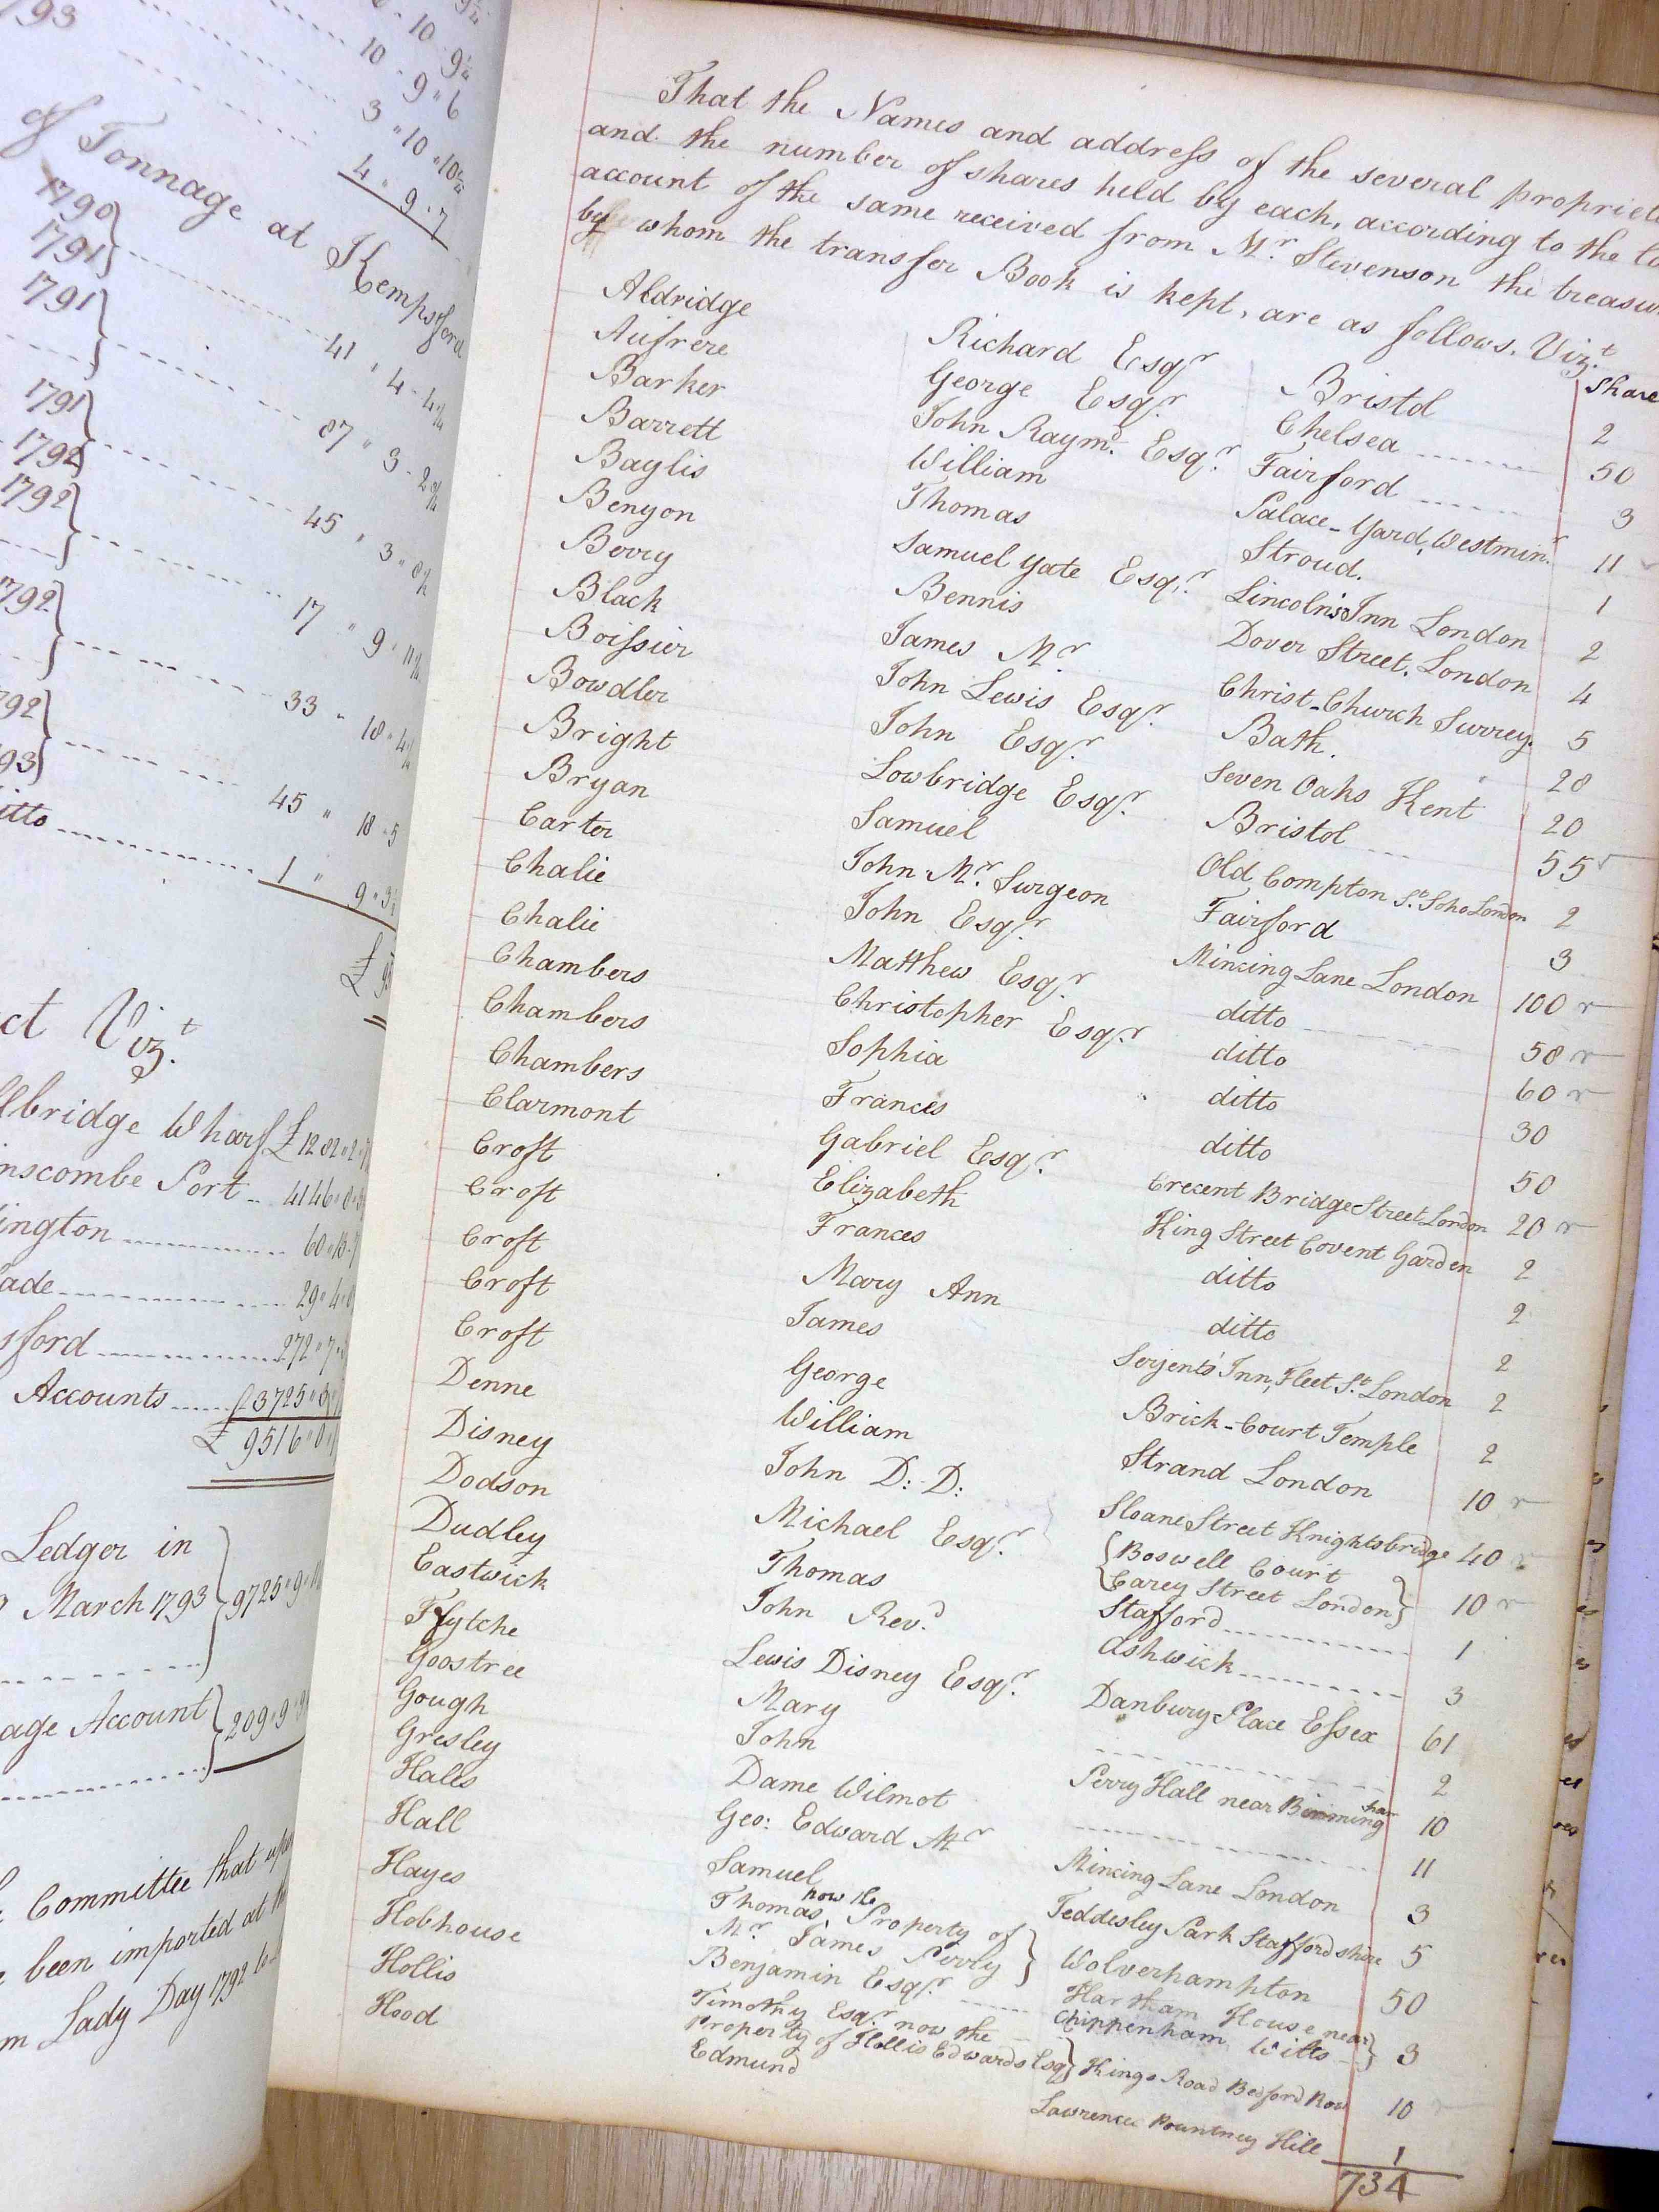 793
10 " 9¼
10 " 9 " 6
3 " 10 " 10¾
4 " 9 " 7
of Tonnage at Kempsford
1790
1791
1791
41 " 4 - 4¼
1791
1792
87 " 3 - 2
1792
45 " 3 " 8½
1792
17 " 9 " 11½
792
93
33 " 18 " 4¼
itto
45 " 18 " 5
1 " 9 " 3½
£ 9
ct Vizt.
lbridge Wharf £ 1282 " 2
nscombe Port 4146 " 8
ington 60 " 13
ade 29 " 4
sford 272 " 7
Accounts 3725 " 3
£ 9516 " 0
Ledger in
March 1793 9725 " 9
age Account 209 " 9
Committee that upon
been imported at the
m Lady Day 1792 to
That the Names and address of the several propriet
and the number of shares held by each, according to the
account of the same received from Mr. Stevenson the treasu
by whom the transfer Book is kept, are as follows. Vizt.
Share
Aldridge Richard Esqr. Bristol 2
Aufrere George Esqr. Chelsea 50
Barker John Raymd. Esqr. Fairford 3
Barrett William Palace-Yard, Westminr. 11
Baylis Thomas Stroud. 1
Benyon Samuel Yate Esqr. Lincoln's Inn London 2
Berry Bennis Dover Street, London 4
Black James Mr. Christ-Church Surrey. 5
Boissier John Lewis Esqr. Bath. 28
Bowdler John Esqr. Seven Oaks Kent 20
Bright Lowbridge Esqr. Bristol 55
Bryan Samuel Old Compton St. Soho London 2
Carter John Mr. Surgeon Fairford 3
Chalie John Esqr. Mincing Lane London 100
Chalie Matthew Esqr. ditto 50
Chambers Christopher Esqr. ditto 60
Chambers Sophia ditto 30
Chambers Frances ditto 50
Clarmont Gabriel Esqr. Crecent Bridge Street London 20
Croft Elizabeth King Street Covent Garden 2
Croft Frances ditto 2
Croft Mary Ann ditto 2
Croft James Serjents' Inn, Fleet St. London 2
Croft George Brick-Court Temple 2
Denne William Strand London 10
Disney John D: D: Sloane Street Knightsbridge 40
Dodson Michael Esqr. Boswell Court
Carey Street London 10
Dudley Thomas Stafford 1
Eastwick John Revd. Ashwick 3
Ffytche Lewis Disney Esqr. Danbury Place Essex 61
Goostree Mary 2
Gough John Perry Hall near Birmingham 10
Gresley Dame Wilmot 11
Hales Geo: Edward Mr Mincing Lane London 3
Hall Samuel Teddesley Park Staffordshire 5
Hayes Thomas, now the Property of
Mr. James Perry Wolverhampton 50
Hobhouse Benjamin Esqr. Hartham House near
Chippenham Wilts 3
Hollis Timothy Esqr. now the
Property of Hollis Edwards Esq Kings Road Bedford Row 10
Hood Edmund Lawrence Pountney Hill 1
734